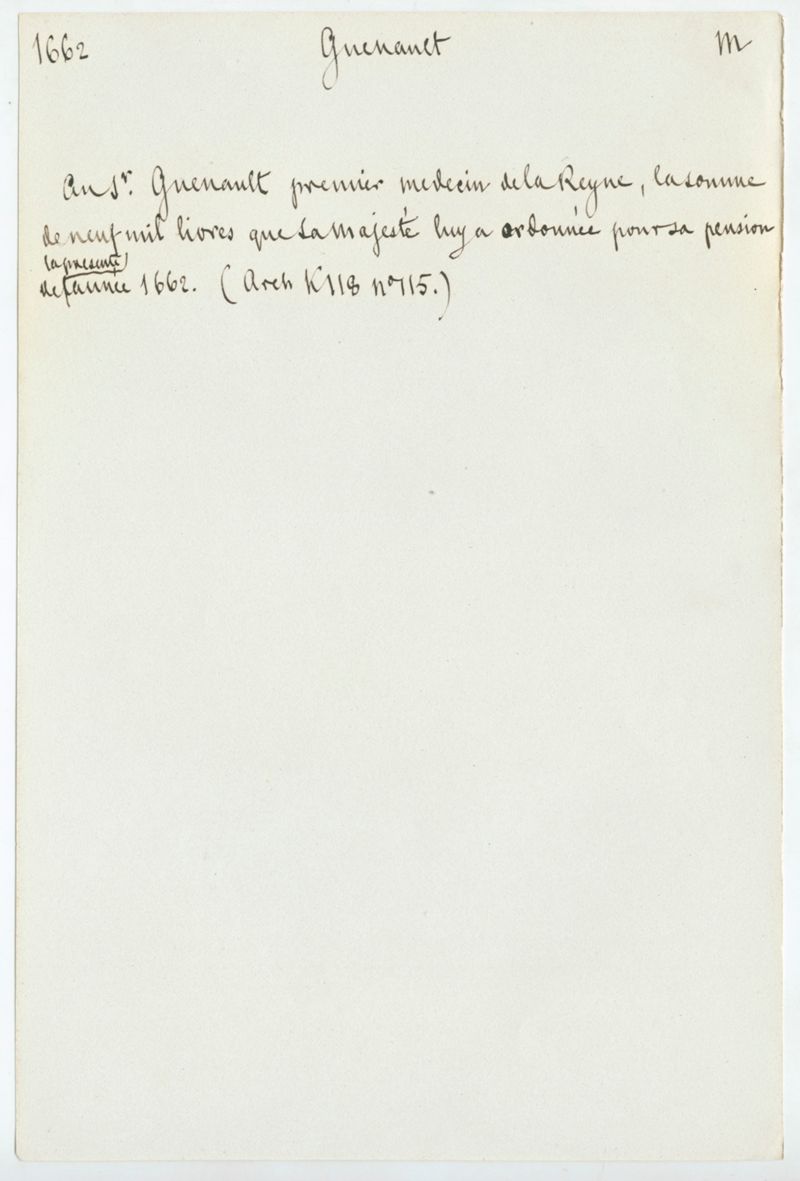 1662 Guenault M
Au Sr. Guenault premier medecin de la Reyne, la somme
de neuf mil livres que Sa Majesté luy a ordonnée pour sa pension
la presente
de année 1662. (Arch K 118 no 115.)